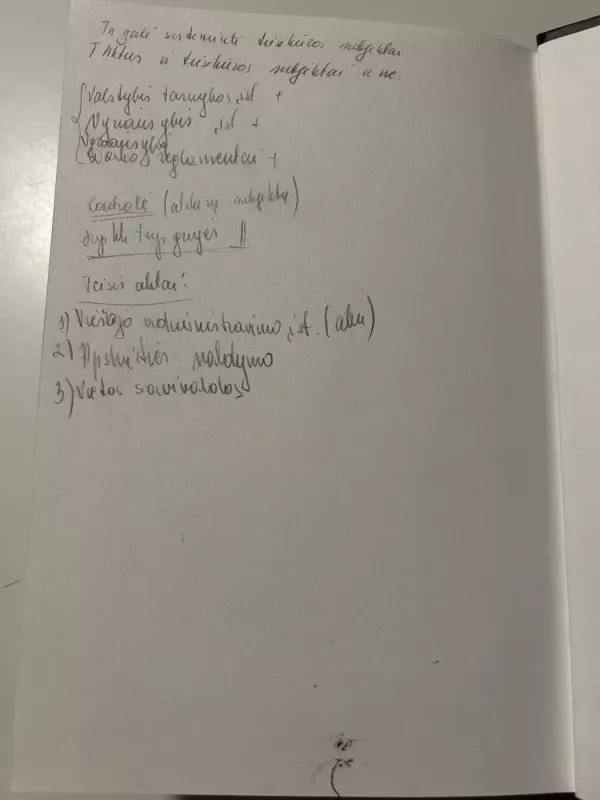 gali susteminti teisėkūros subjektai
TAktus ir teisėkūros subjektai ir ne.
Valstybės tarnybos įst +
Vyriausybės įst +
Vyriausybės
Darbo reglamentai +
Kontrolė (atskirų subjektų)
trys grupės !!
Teisės aktai:
1) Viešojo administravimo įst. (abu)
2) Apskrities valdymo
3) Vietos savivaldos